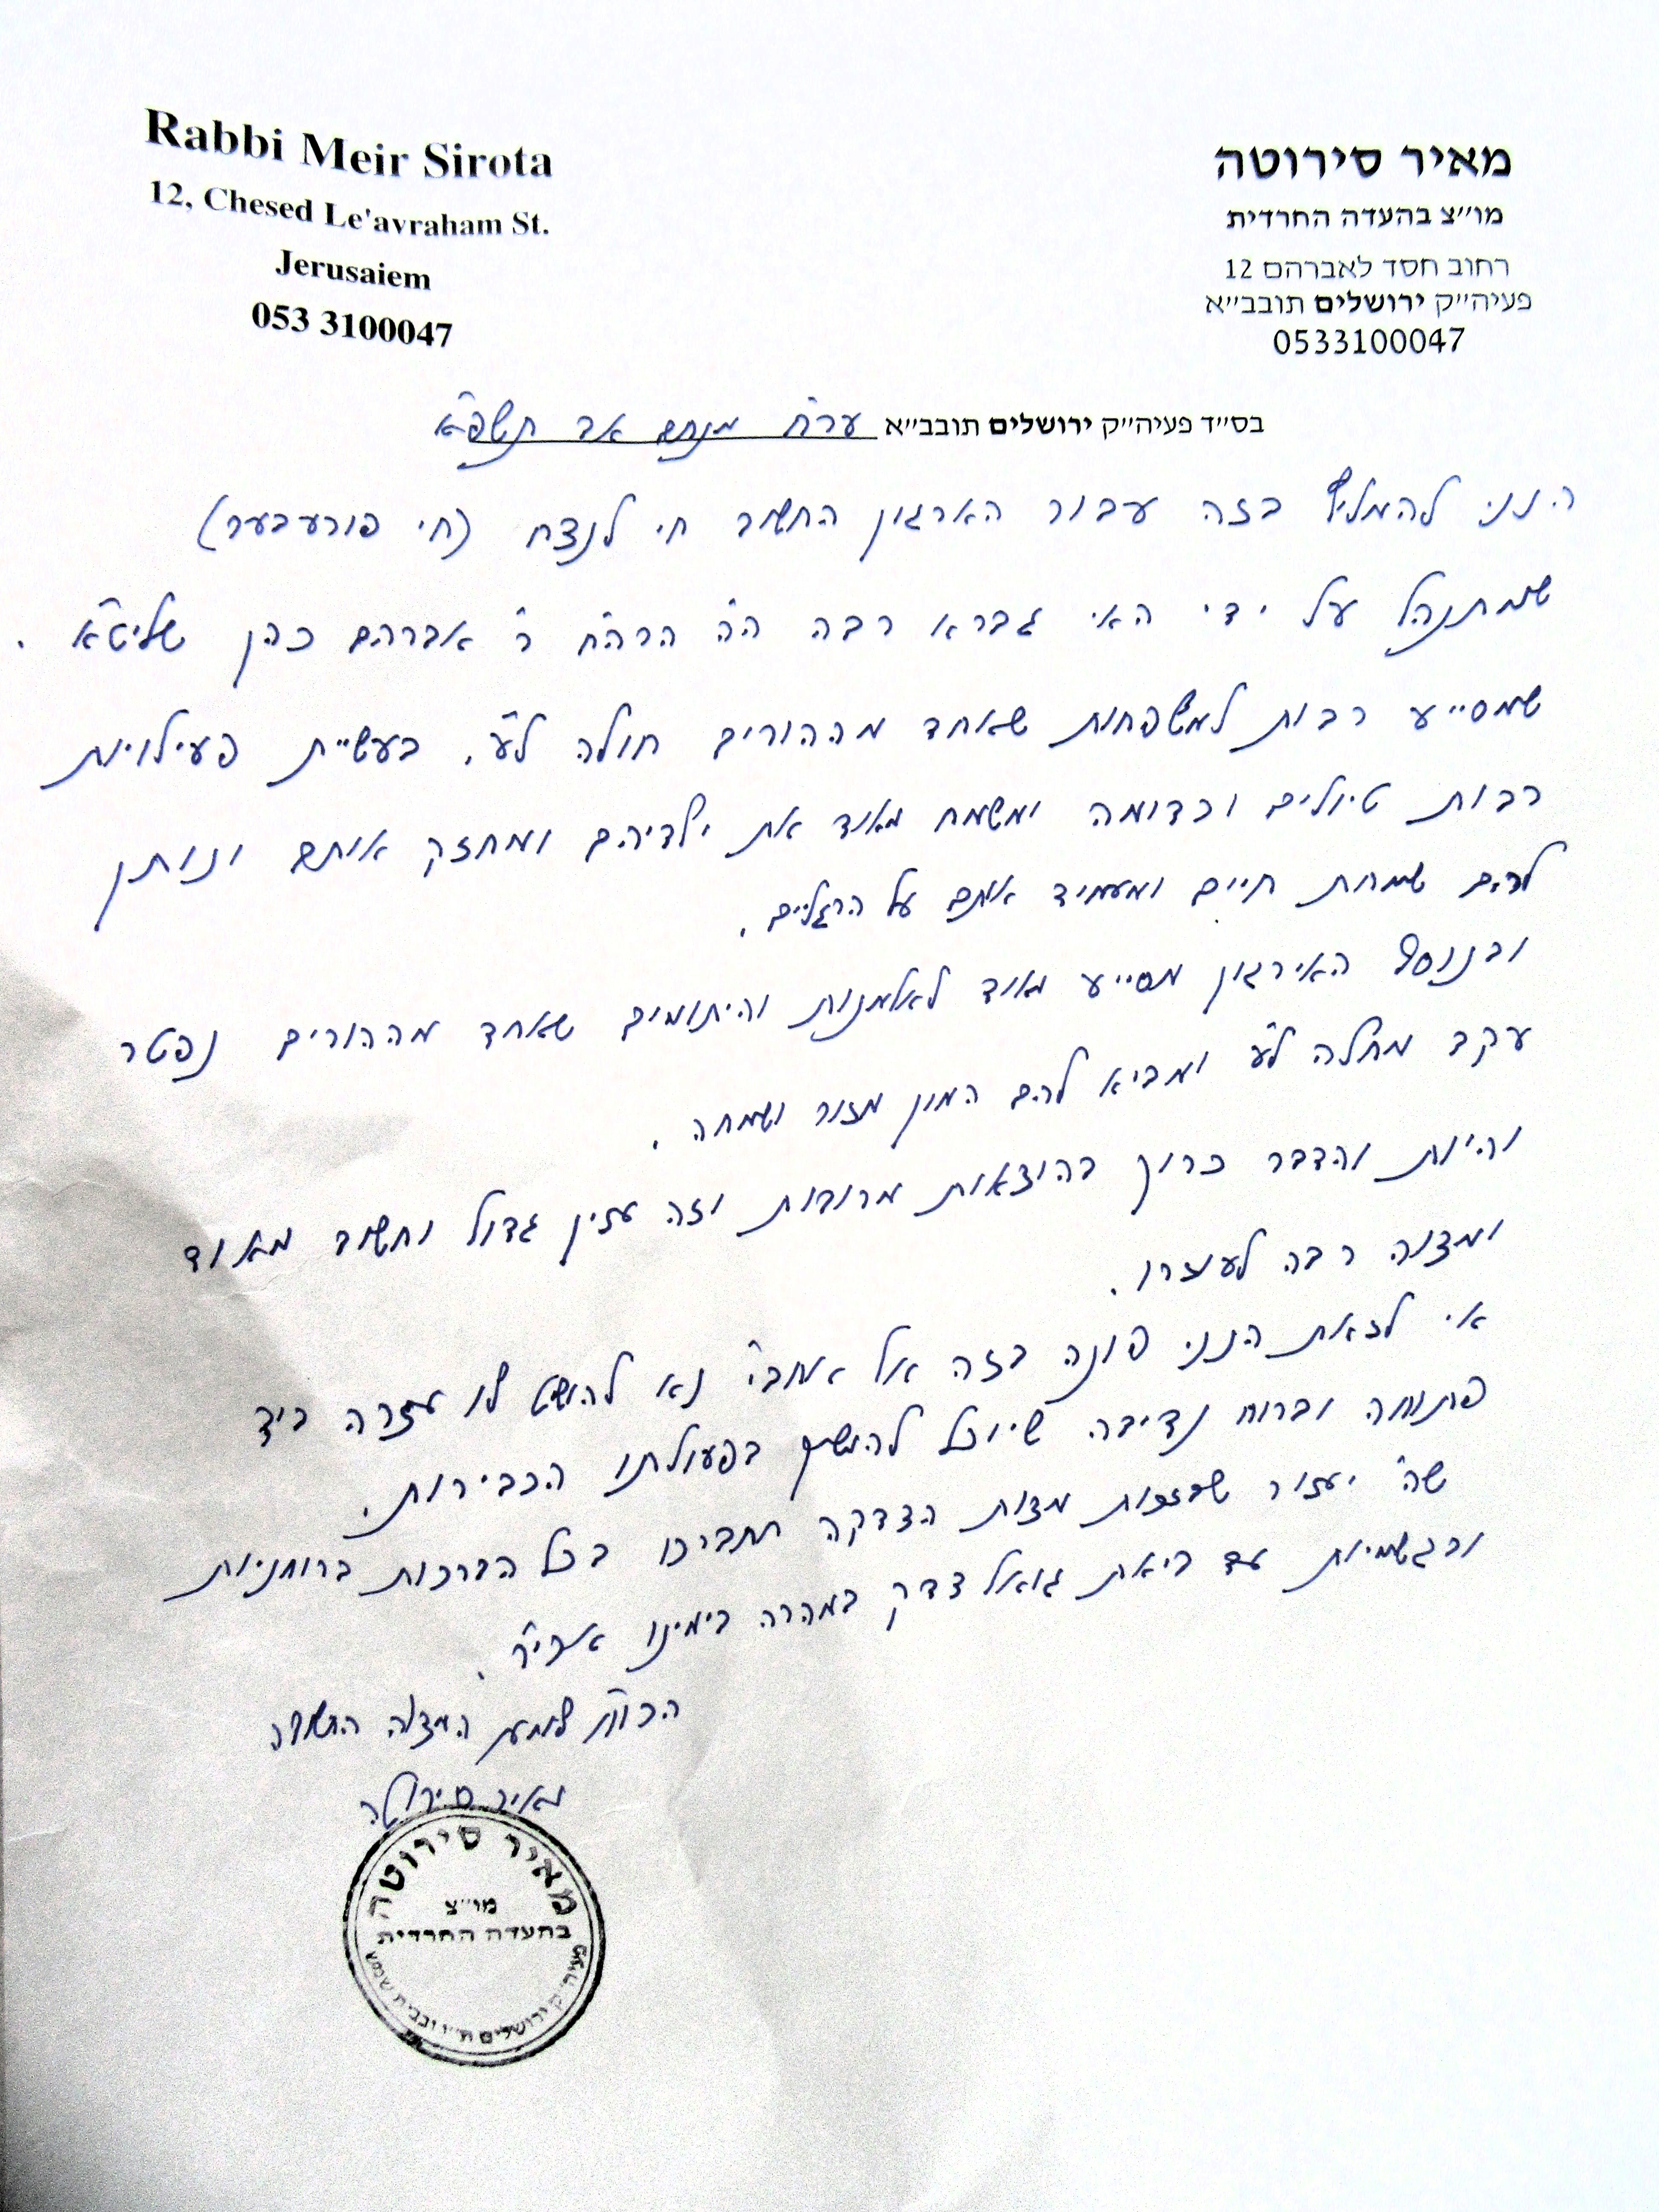 Rabbi Meir Sirota
12, Chesed Le'avraham St.
Jerusaiem
053 3100047
מאיר סירוטה
מו״צ בהעדה החרדית
רחוב חסד לאברהם 12
פעיה״ק ירושלים תובב״א
0533100047
בס״ד פעיה״ק ירושלים תובב״א ער״ח מנחם אב תשפ״א
הנני להמליץ בזה עבור הארגון החשוב חי לנצח (חי פורעבער)
שמתנהל על ידי האי גברא רבה ה״ה הרה״ח ר' אברהם כהן שליט״א .
שמסייע רבות למשפחות שאחד מההורים חולה ל״ע, בעשיית פעילויות
רבות טיולים וכדומה ומשמח מאוד את ילדיהם ומחזק אותם ונותן
להם שמחת חיים ומעמיד אותם על הרגליים .
ובנוסף האירגון מסייע מאוד לאלמנות והיתומים שאחד מההורים נפטר
עקב מחלה ל״ע ומביא להם המון מזור ושמחה .
והיות והדבר כרוך בהוצאות מרובות וזה ענין גדול וחשוב מאוד
ומצוה רבה לעוזרו .
אי לזאת הנני פונה בזה אל אחב״י נא להושיט לו עזרה ביד
פתוחה וברוח נדיבה שיוכל להמשיך בפעולתו הכבירות .
שה' יעזור שבזכות מצות הצדקה תתברכו בכל הברכות ברוחניות
ובגשמיות עד ביאת גואל צדק במהרה בימינו אכי״ר .
הכו״ח למען המצוה החשובה
מאיר סירוטה
מאיר סירוטה
מו״צ
בהעדה החרדית
פעיה״ק ירושלים ת״ו ובבית שמש